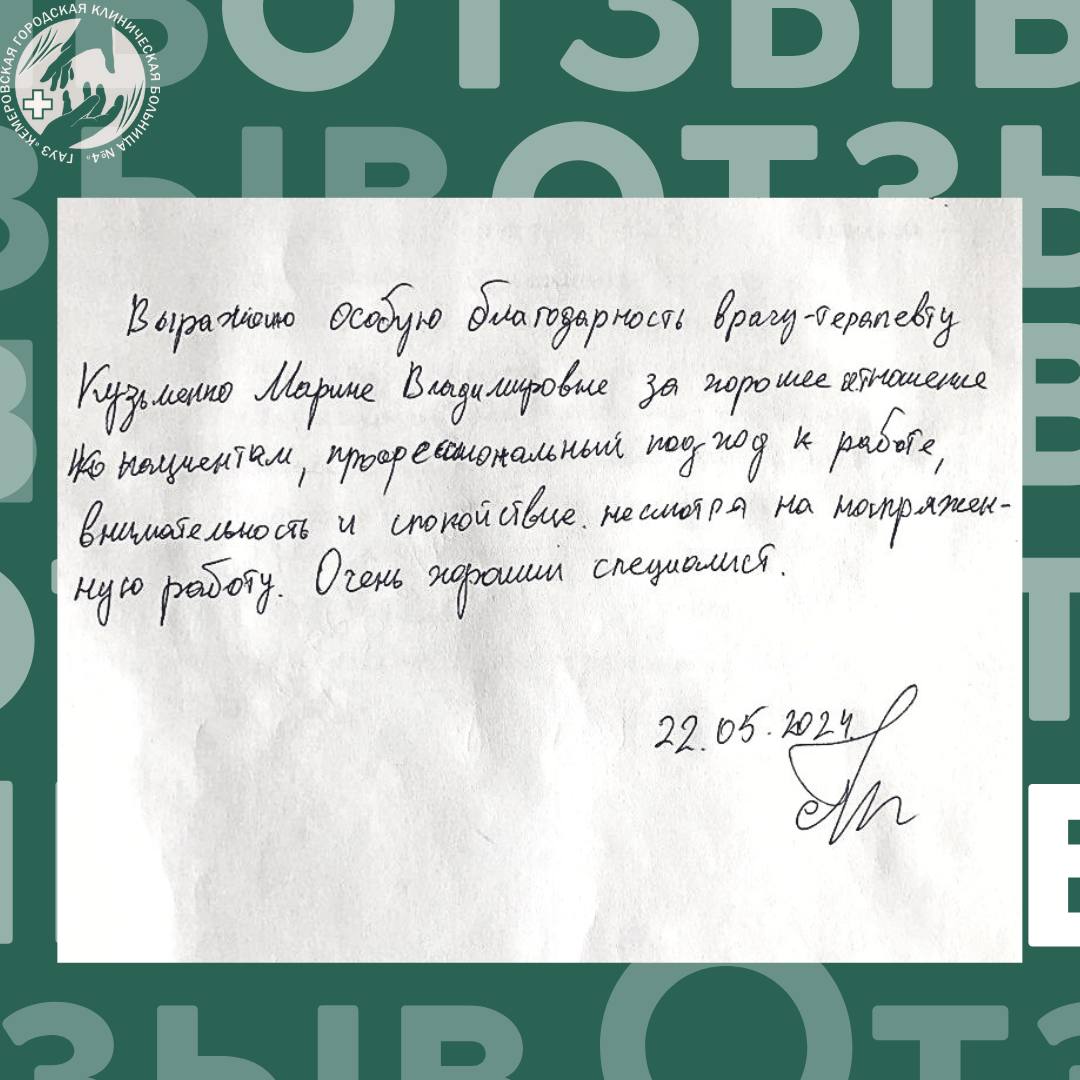 ГАУЗ «КЕМЕРОВСКАЯ ГОРОДСКАЯ КЛИНИЧЕСКАЯ БОЛЬНИЦА №4»
ОТЗЫВ
ОТЗЫВ
Выражаю особую благодарность врачу-терапевту
Кузьменко Марине Владимировне за хорошее отношение
к пациентам, профессиональный подход к работе,
внимательность и спокойствие несмотря на напряжен-
ную работу. Очень хороший специалист.
22.05.2024
ЗЫВ ОТЗ